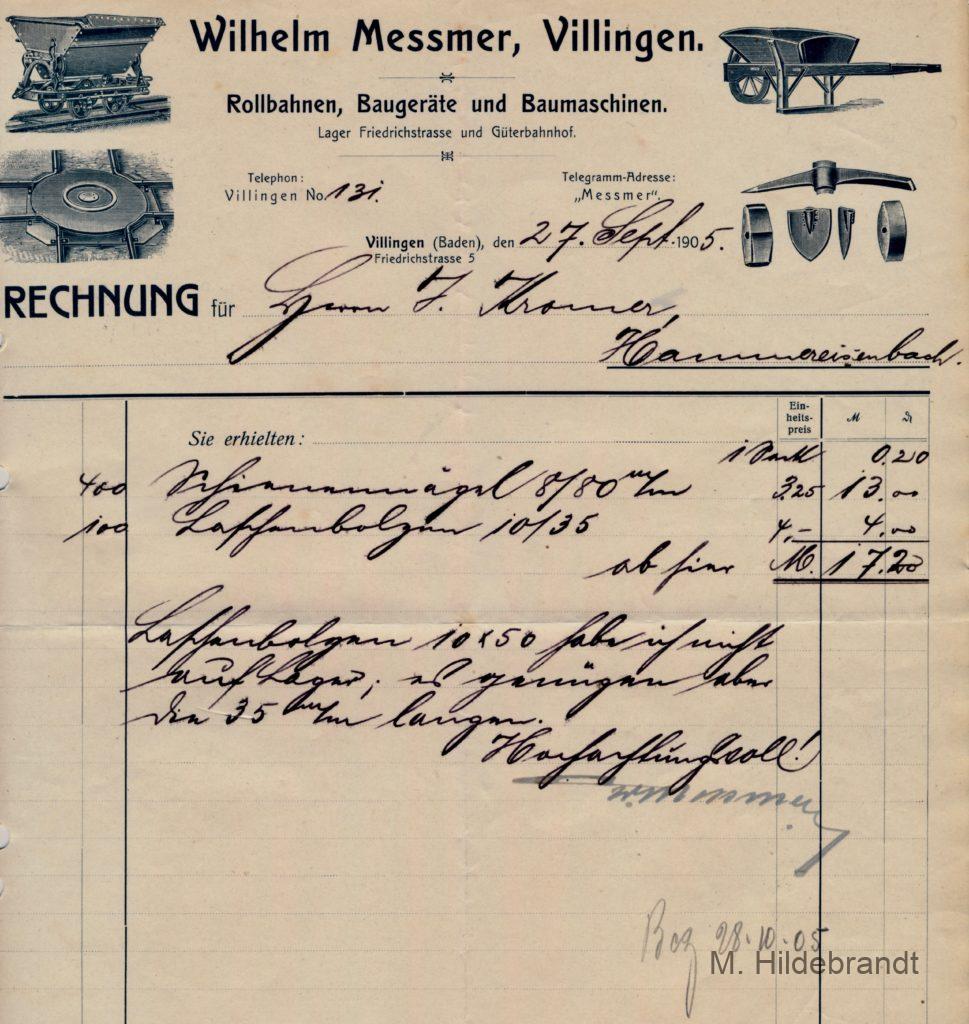 Wilhelm Messmer, Villingen.
Rollbahnen, Baugeräte und Baumaschinen.
Lager Friedrichstrasse und Güterbahnhof.
Telephon:
Villingen No. 131.
Telegramm-Adresse:
„Messmer“.
Villingen (Baden), den 27. Sept. 1905.
Friedrichstrasse 5
RECHNUNG für Herrn J. Kromer,
Hammereisenbach.
Ein-
heits-
preis
M ₰
Sie erhielten:
1 Sack 0.20
400 Schienennägel 8/80 m/m 3.25 13.00
100 Laschenbolzen 10/35 4.- 4.00
ab hier M. 17.20
Laschenbolzen 10x50 habe ich nicht
auf Lager; es genügen aber
die 35 m/m langen.
Hochachtungsvoll!
W. Messmer
Bez 28.10.05
M. Hildebrandt